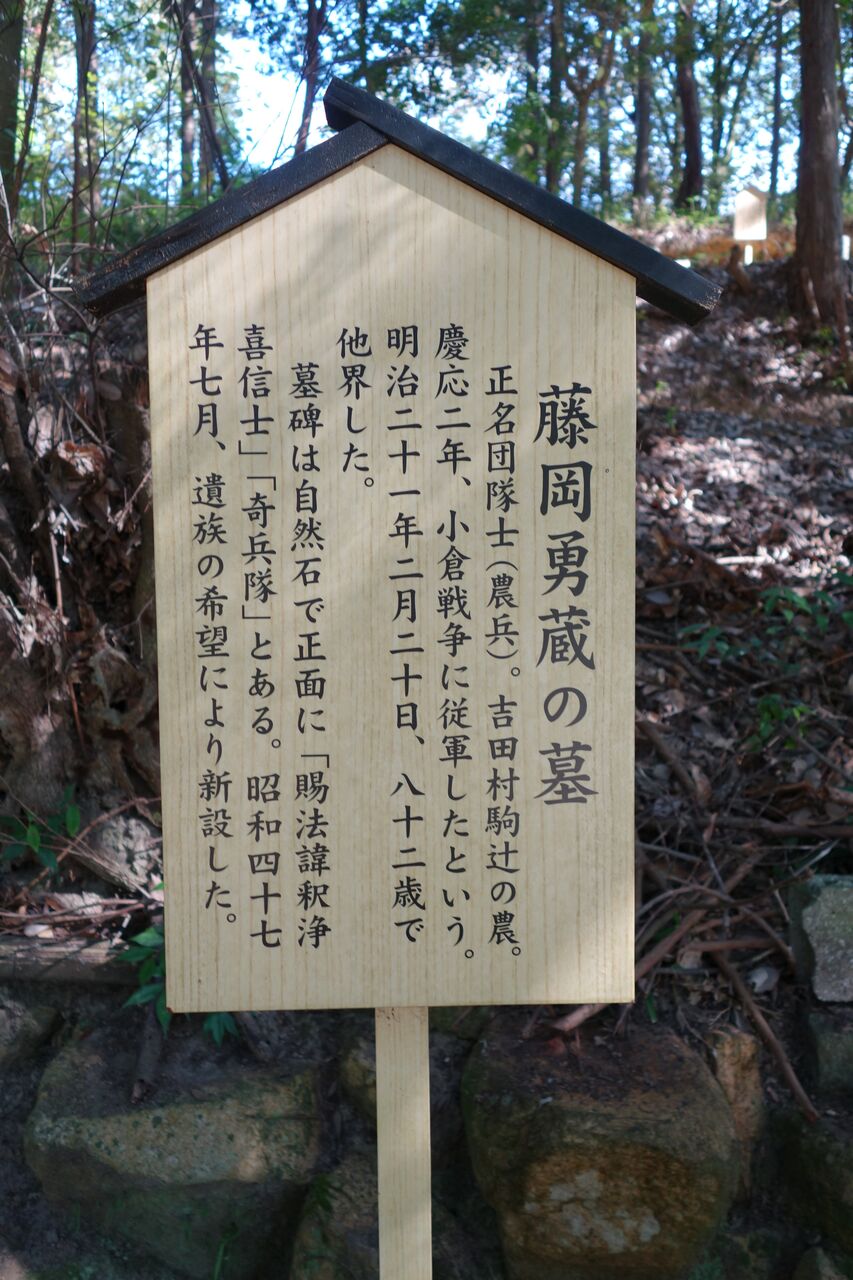 藤岡勇蔵の墓
正名団隊士(農兵)。吉田村駒辻の農。
慶応二年、小倉戦争に従軍したという。
明治二十一年二月二十日、八十二歳で
他界した。
墓碑は自然石で正面に「賜法諱釈浄
喜信士」「奇兵隊」とある。昭和四十七
年七月、遺族の希望により新設した。